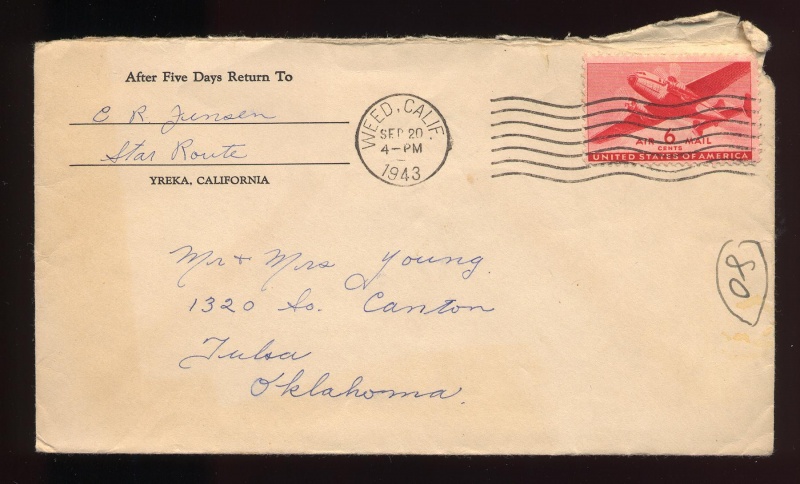 After Five Days Return To
C R Jensen
Star Route
YREKA, CALIFORNIA
WEED, CALIF.
SEP 20
4-PM
1943
6
CENTS
AIR MAIL
UNITED STATES OF AMERICA
Mr + Mrs Young
1320 So. Canton
Tulsa
Oklahoma.
80